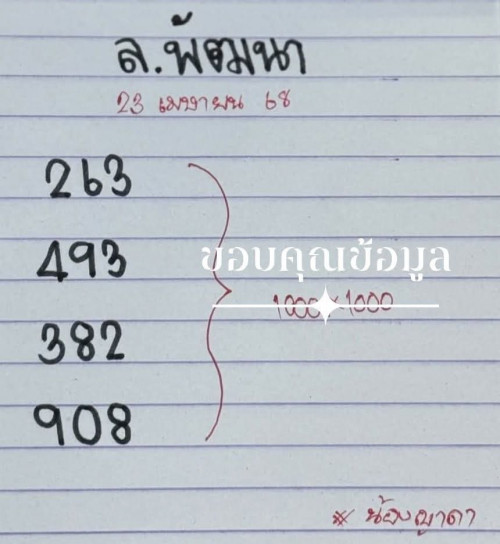 ล.พัฒนา
23 เมษายน 68
263
493
ขอบคุณข้อมูล
1000×1000
382
908
* น้องญาดา